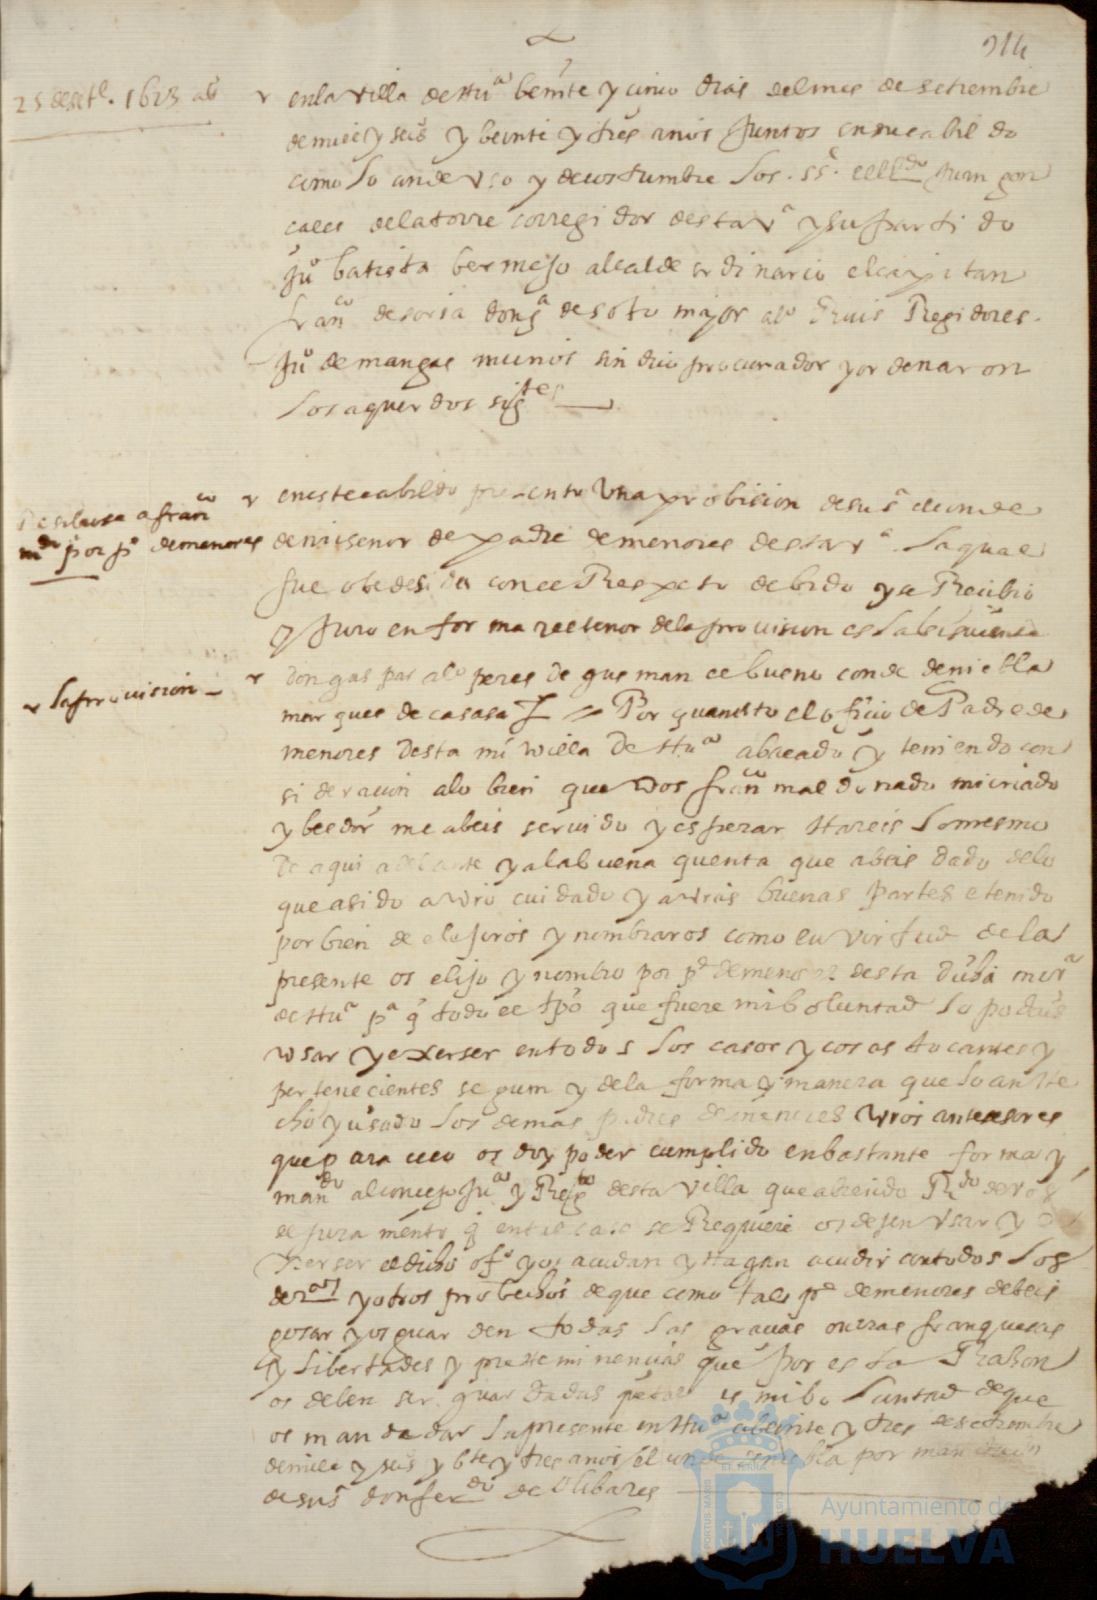 214
25 de setº. 1623 aº
en la villa de Huª beinte y cinco dias del mes de setiembre
de mill y seisº y beinte y tres años Juntos en su cabildo
como lo an de vso y de costumbre los. ss. el lldo Juan gon
cales de la torre corregidor desta vª y su partido
Juº batista bermejo alcalde ordinario el capitan
franco de soria don gª de soto major alº Ruis Regidores.
Juº de mangas munis sindico procurador y ordenaron
los aquerdos sigtes
franco
mdo por pe de menores
en este cabildo presento Una probision de su sª el conde
de mi señor de padre de menores desta vª. la qual
fue obedesida con el Respeto debido y se Recibio
y Juro en forma y el tenor de la provision es la siguiente
la provision
don gaspar alº peres de gusman el bueno conde de niebla
marques de casasa Por quanto el oficio de Padre de
menores desta mi villa de Huª a bacado y teniendo con
sideracion a lo bien que vos franco maldonado mi criado
y beedor me abeis servido y esperar Hareis lo mesmo
de aqui adelante y a la buena quenta que abeis dado de lo
que a sido a vro cuidado y a vras buenas partes e tenido
por bien de elejiros y nombraros como en virtud de la
presente os elijo y nombro por pe de menores desta dicha mi vª
de Huª pª q todo el tpo que fuere mi boluntad lo podais
vsar y exerser en todos los casos y cosas tocantes y
pertenecientes segum y de la forma y manera que lo an He
cho y usado los demas padres de menores vros antesesores
que para ello os doy poder cumplido en bastante forma y
mando al concejo Juª y Regto desta villa que abiendo Rdo de vos
el juramento q en tal caso se Requiere os dejen vsar y e
xerser el dicho ofº y os acudan y Hagan acudir con todos los
derºs y otros probechos de que como tal pe de menores debeis
gosar y os guarden todas las gracias onrras franquesas
y libertades y preHeminencias que por esta Rason
os deben ser guardadas que tal es mi boluntad de que
os mande dar la presente en Huª a beinte y tres de setiembre
de mill y seisº y bte y tres años el conde de niebla por mandado
de su sª don ferdo de olibares
Ayuntamiento de
HUELVA